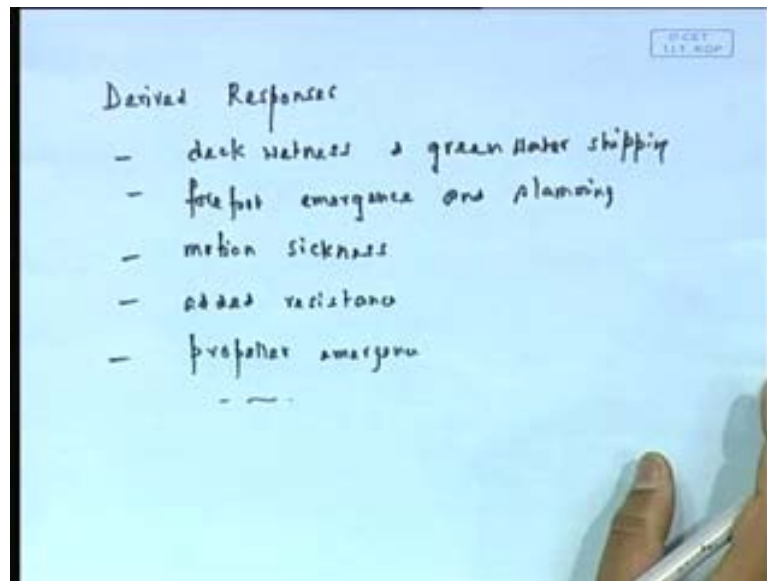 © CET
I.I.T. KGP
Derived Responses
- deck wetness & green water shipping
- forefoot emergence and slamming
- motion sickness
- added resistance
- propeller emergence